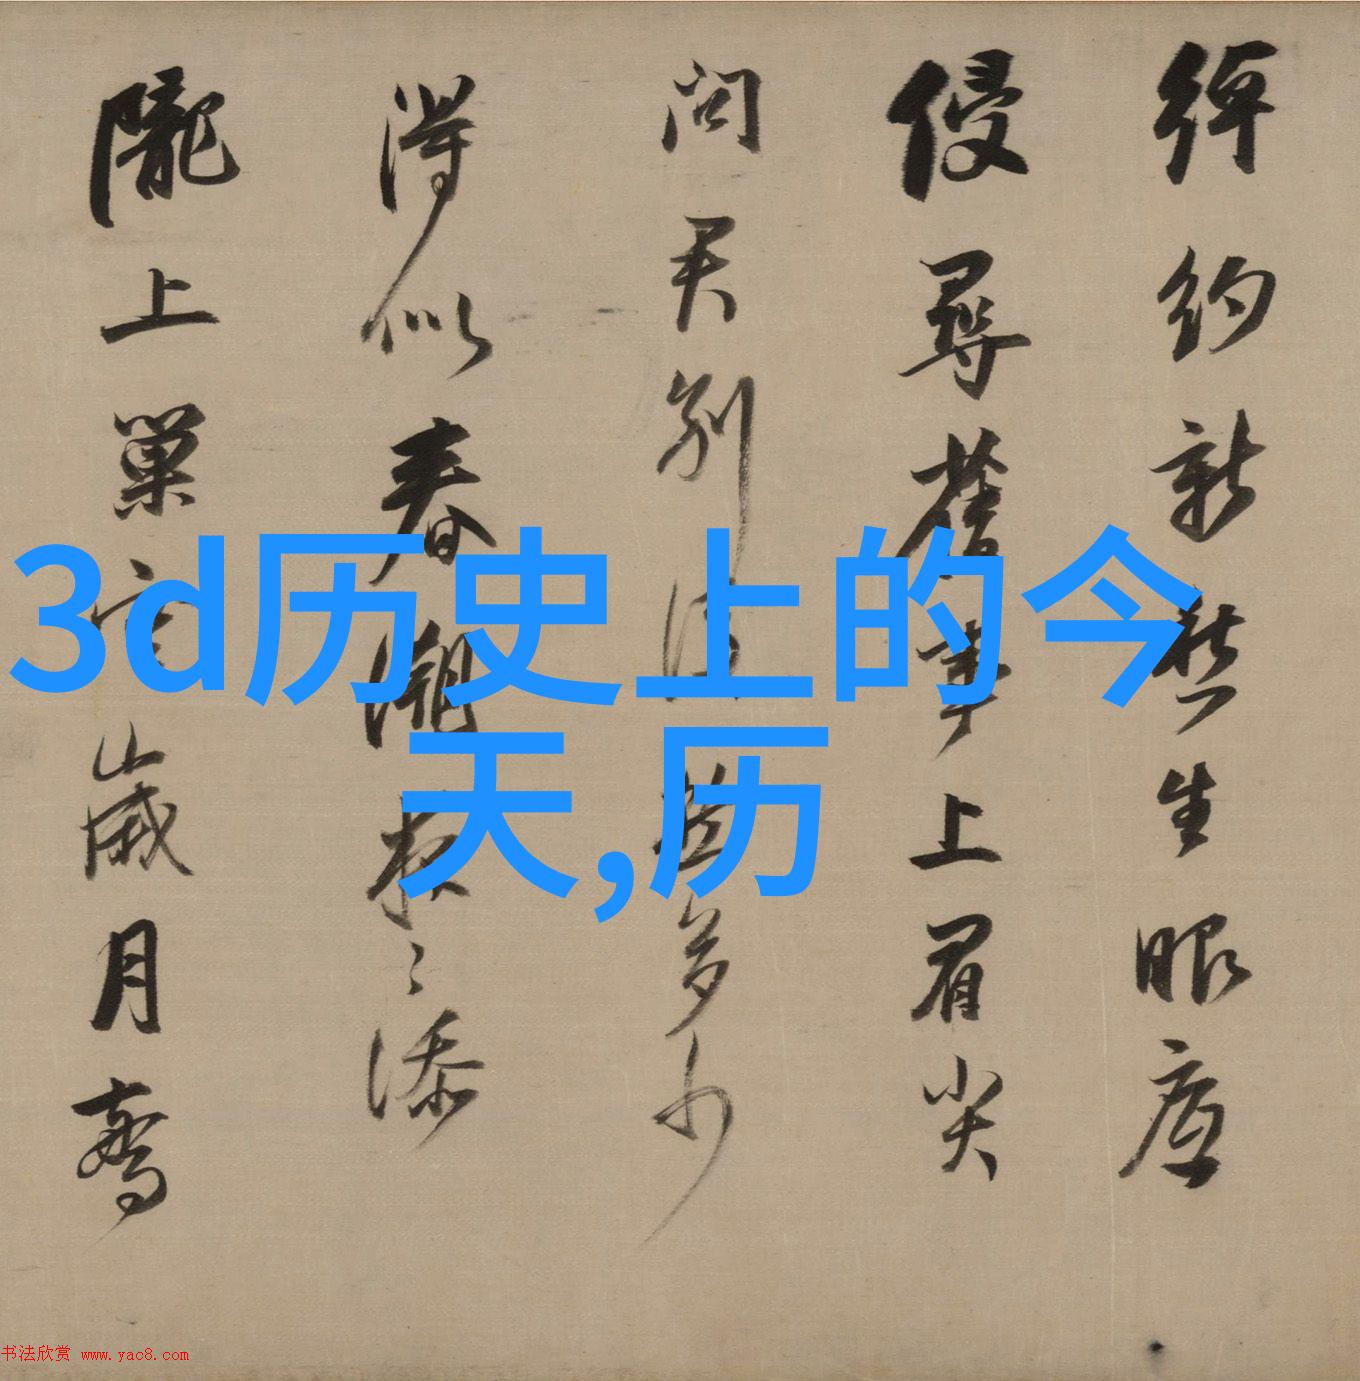 綽約新愁生眼底
侵尋舊事上眉尖
問君別後愁多少
得似春潮夜々添
隴上巢空歲月驚
3d历史上的今
天,历
书法欣赏 www.yac8.com